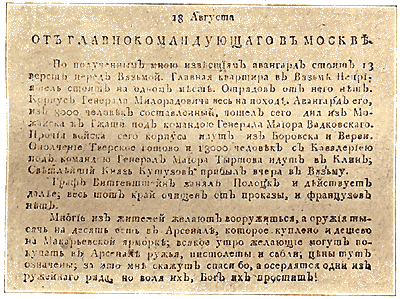 18 Августа
ОТЪ ГЛАВНОКОМАНДУЮЩАГО ВЪ МОСКВѢ.
По полученнымъ мною извѣстіямъ авангардъ стоитъ 13
верстъ передъ Вязьмой. Главная квартира въ Вязьмѣ. Непрі-
ятель стоитъ на одномъ мѣстѣ. Отрядовъ отъ него нѣтъ.
Корпусъ Генерала Милорадовича весь на походѣ. Авангардъ его,
изъ 9000 человѣкъ составленный, пошелъ сего дня изъ Мо-
жайска въ Гжать подъ командою Генерала Маіора Вадковскаго.
Прочія войска сего корпуса идутъ изъ Боровска и Вереи.
Ополченіе Тверское готово и 13000 человѣкъ съ Кавалеріею
подъ командою Генералъ Маіора Тыртова идутъ въ Клинъ;
Свѣтлѣйшій Князь Кутузовъ прибылъ вчера въ Вязьму.
Графъ Витгенштейнъ занялъ Полоцкъ и дѣйствуетъ
далѣе; весь тотъ край очищенъ отъ проказы, и французовъ
нѣтъ.
Многіе изъ жителей желаютъ вооружиться, а оружія ты-
сячь на десять есть въ Арсеналѣ, которое куплено и дешево
на Макарьевской ярморкѣ; всякое утро желающіе могутъ по-
купать въ Арсеналѣ ружья, пистолеты и сабли; цѣны тутъ
означены; за это мнѣ скажутъ спасибо, а осердятся одни изъ
ружейнаго ряду, но воля ихъ, Богъ ихъ проститъ!